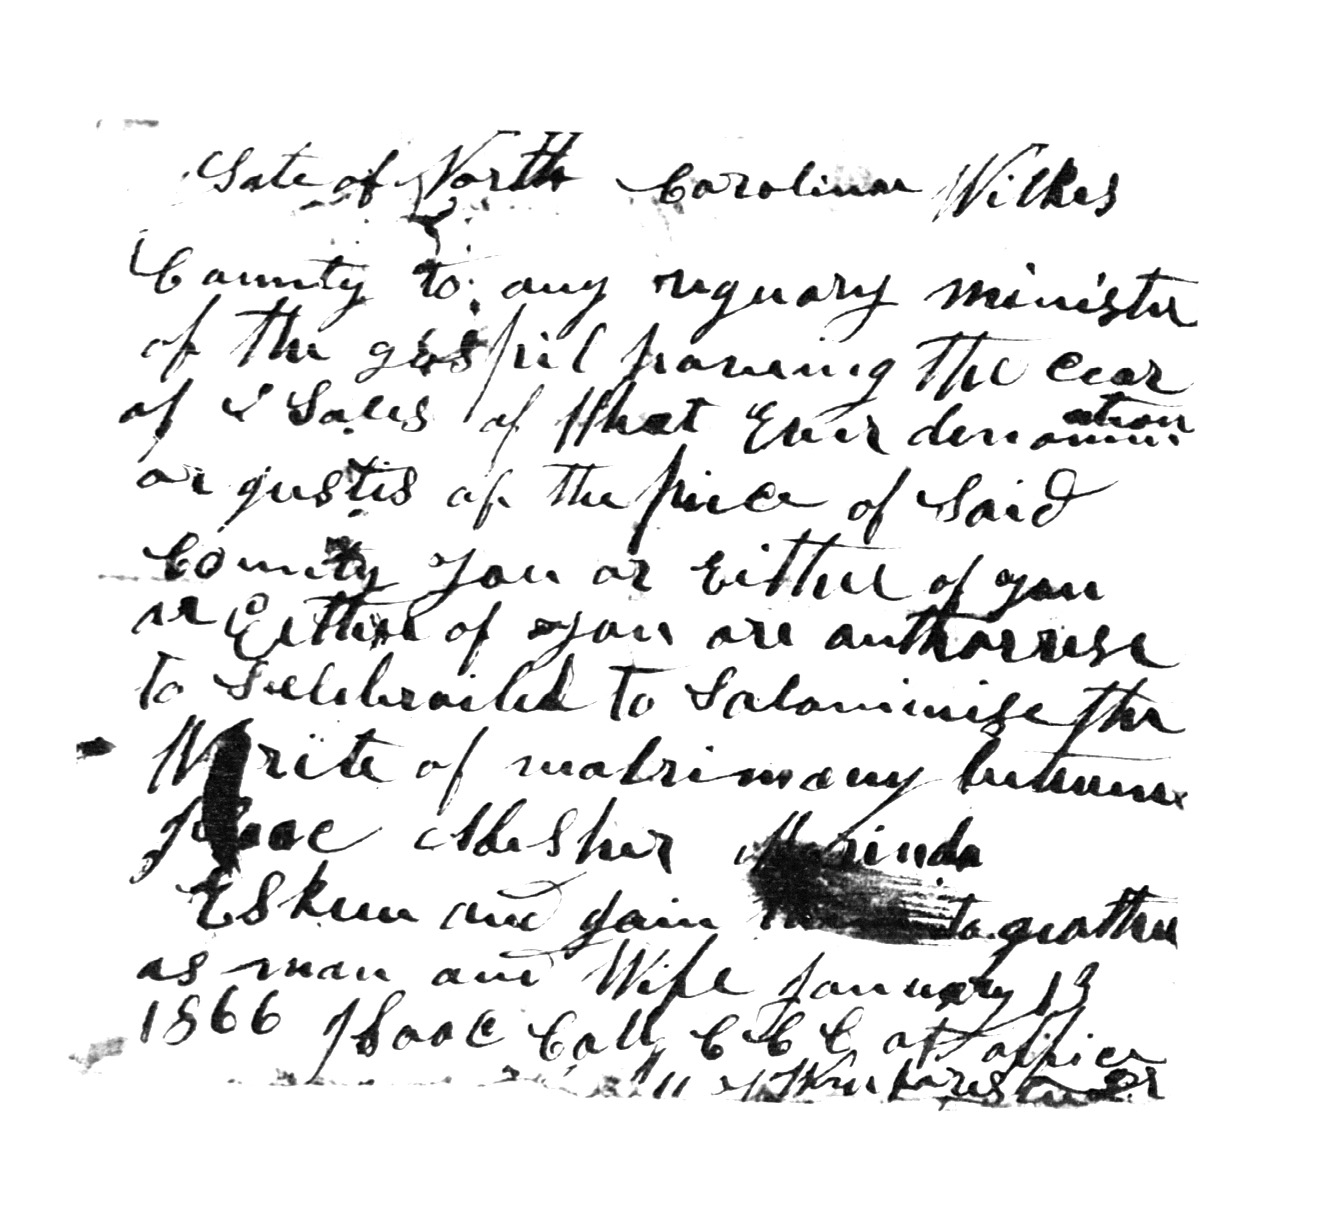 Sate of North Carolina Wilkes
County to any reguary minister
of the gospil haveing the cear
of Soles of What Ever denomination
or justis of the piece of Said
County you or Either of you
or Either of you are authorrise
to Selebraited to Salominise the
Write of matrimony betwen
Isaac Mesher Marinda
Eskew and gain togeather
as man and Wife January 13
1866 Isaac Call C C C at office